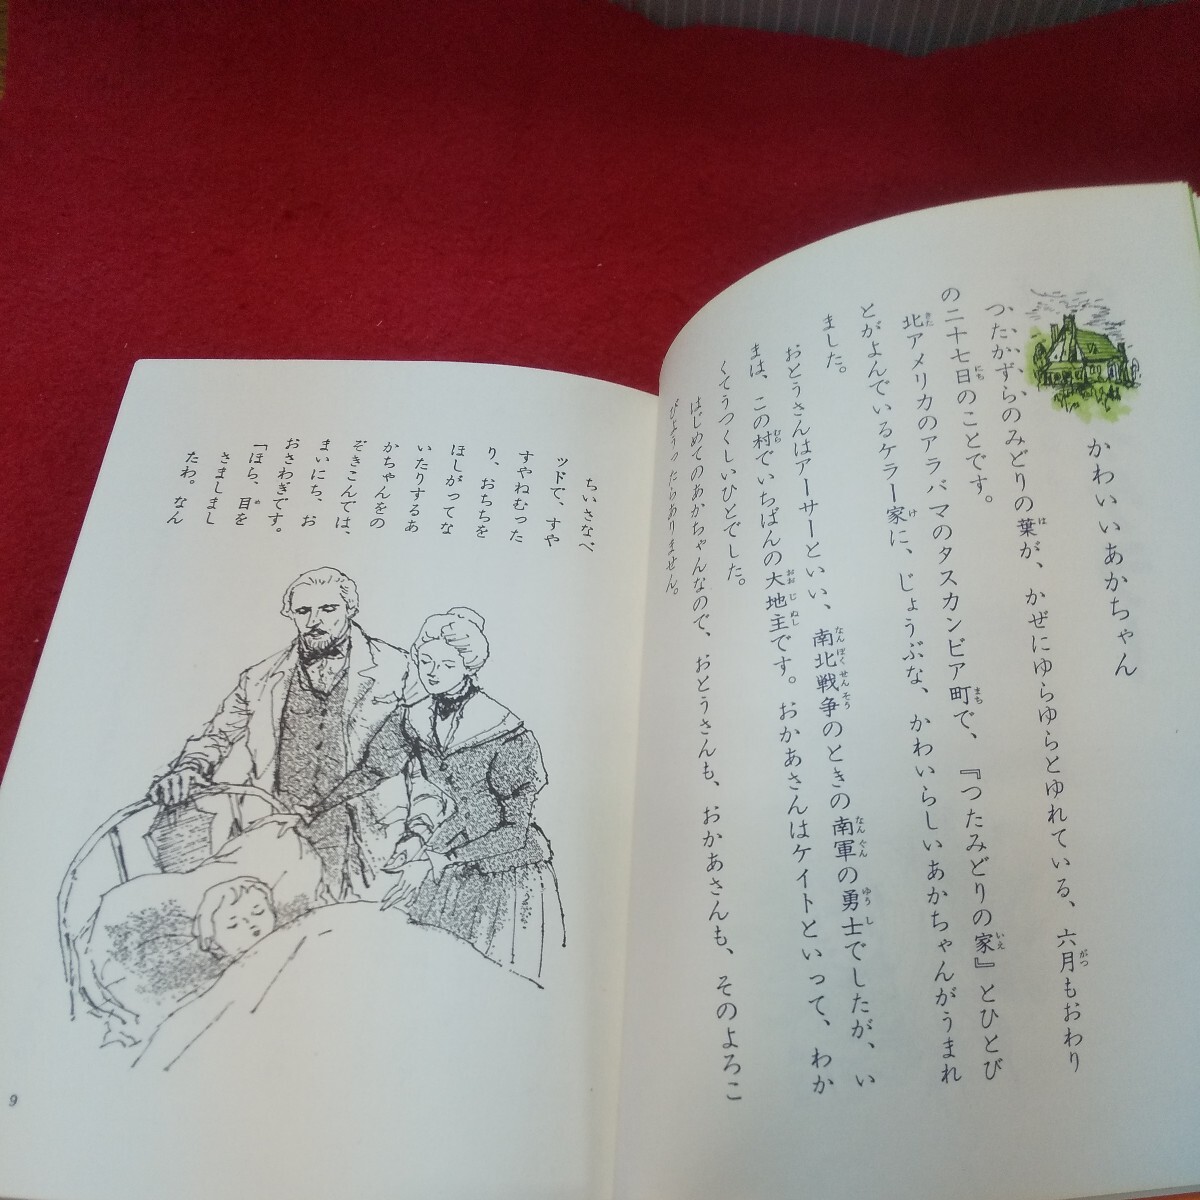 かわいいあかちゃん
つたかずらのみどりの葉が、かぜにゆらゆらとゆれている、六月もおわり
の二十七日のことです。
北アメリカのアラバマのタスカンビア町で、『つたみどりの家』とひとび
とがよんでいるケラー家に、じょうぶな、かわいらしいあかちゃんがうまれ
ました。
おとうさんはアーサーといい、南北戦争のときの南軍の勇士でしたが、い
まは、この村でいちばんの大地主です。おかあさんはケイトといって、わか
くてうつくしいひとでした。
はじめてのあかちゃんなので、おとうさんも、おかあさんも、そのよろこ
びようったらありません。
ちいさなベ
ッドで、すや
すやねむった
り、おちちを
ほしがってな
いたりするあ
かちゃんをの
ぞきこんでは、
まいにち、お
おさわぎです。
「ほら、目を
さましまし
たわ。なん
9